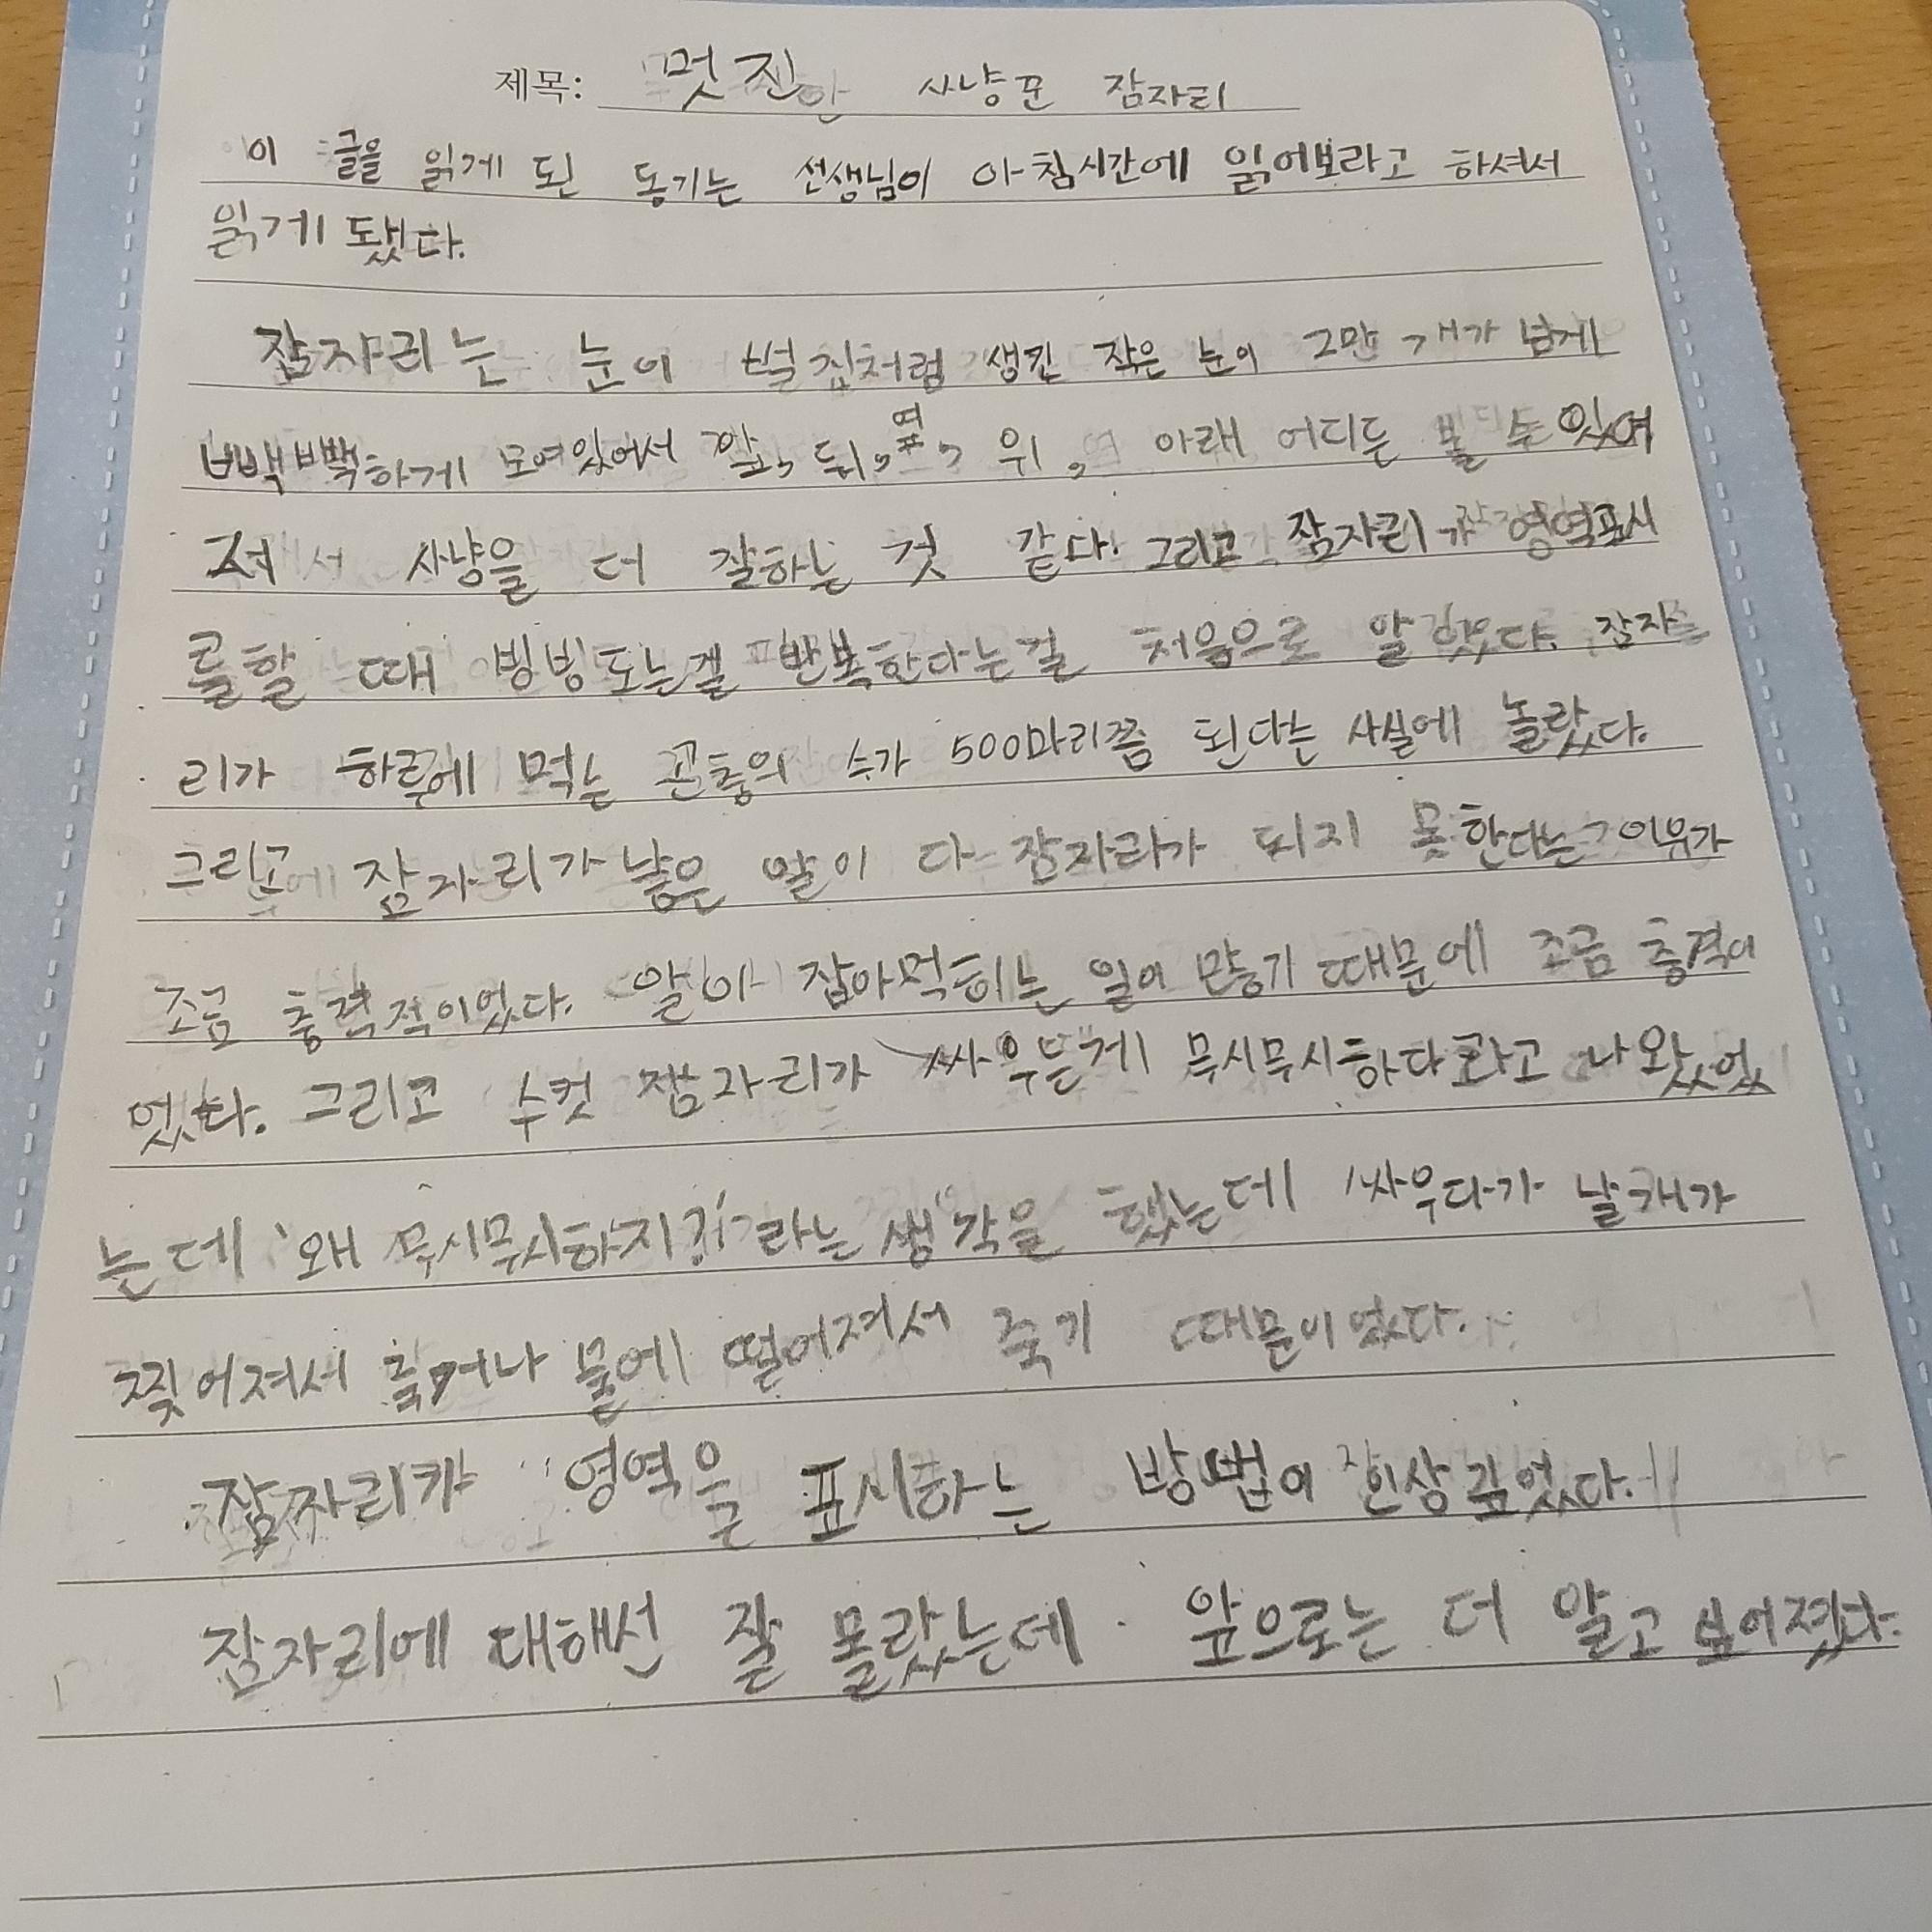 제목: 멋진 사냥꾼 잠자리
이 글을 읽게 된 동기는 선생님이 아침시간에 읽어보라고 하셔서
읽게 됐다.
잠자리는 눈이 벌집처럼 생긴 작은 눈이 2만 개가 넘게
빽빽하게 모여있어서 앞, 뒤, 옆, 위, 아래 어디든 볼 수 있여
져서 사냥을 더 잘하는 것 같다. 그리고 잠자리가 영역표시
를할 때 빙빙도는걸 반복한다는걸 처음으로 알았다. 잠자
리가 하루에 먹는 곤충의 수가 500마리쯤 된다는 사실에 놀랐다.
그리고 잠자리가 낳은 알이 다 잠자리가 되지 못한다는 이유가
조금 충격적이었다. 알이 잡아먹히는 일이 많기 때문에 조금 충격이
었다. 그리고 수컷 잠자리가 싸우는게 무시무시하다라고 나왔었
는데 '왜 무시무시하지?'라는 생각을 했는데 싸우다가 날개가
찢어져서 죽거나 물에 떨어져서 죽기 때문이었다.
잠자리가 영역을 표시하는 방법이 인상깊었다.
잠자리에 대해선 잘 몰랐는데 앞으로는 더 알고 싶어졌다.